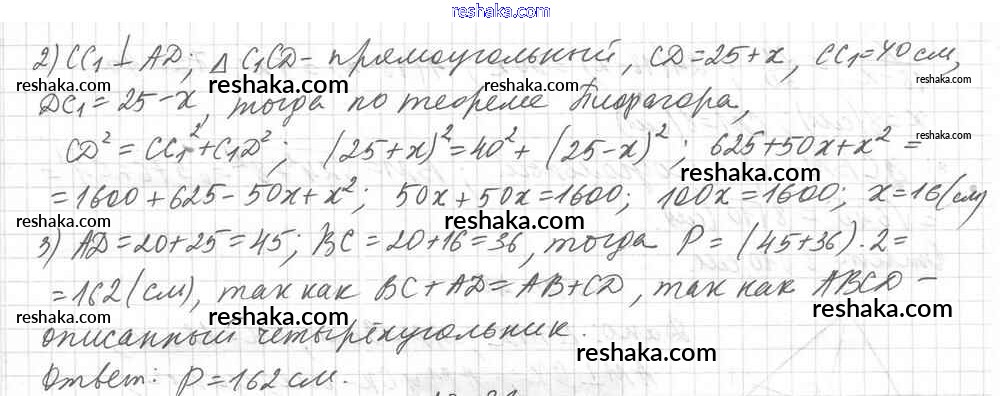 www.reshaka.com
2) CC₁ ⊥ AD; △ C₁CD - прямоугольный, CD = 25 + x, CC₁ = 40 см,
reshaka.com
DC₁ = 25 - x, тогда по теореме Пифагора,
reshaka.com reshaka.com
CD² = CC₁² + C₁D²; (25 + x)² = 40² + (25 - x)²; 625 + 50x + x² =
reshaka.com
reshaka.com reshaka.com reshaka.com
= 1600 + 625 - 50x + x²; 50x + 50x = 1600; 100x = 1600; x = 16 (см)
reshaka.com reshaka.com
reshaka.com
3) AD = 20 + 25 = 45; BC = 20 + 16 = 36, тогда P = (45 + 36) · 2 =
reshaka.com
= 162 (см), так как BC + AD = AB + CD, так как ABCD -
reshaka.com reshaka.com
описанный четырёхугольник.
reshaka.com
Ответ: P = 162 см.
reshaka.com